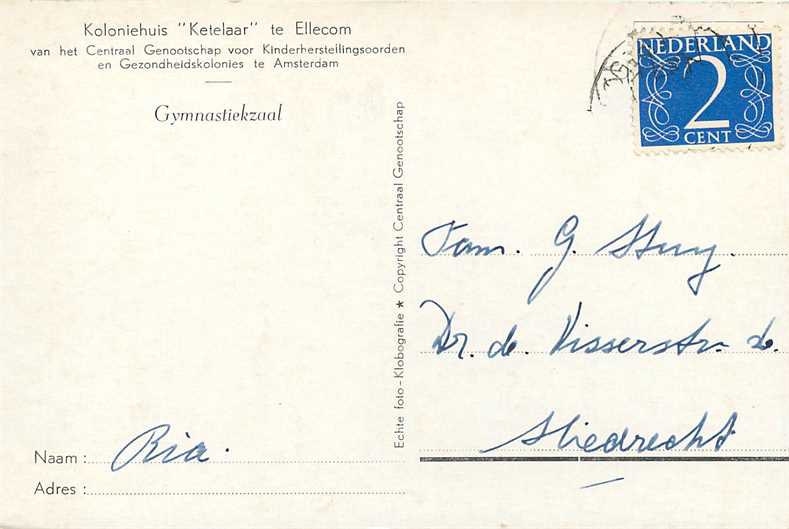 Koloniehuis "Ketelaar" te Ellecom
van het Centraal Genootschap voor Kinderherstellingsoorden
en Gezondheidskolonies te Amsterdam
Gymnastiekzaal
Echte foto-Klobografie ★ Copyright Centraal Genootschap
Naam: Ria.
Adres:
NEDERLAND
2
CENT
Fam. G.
Dr. de Visserstr.
Sliedrecht